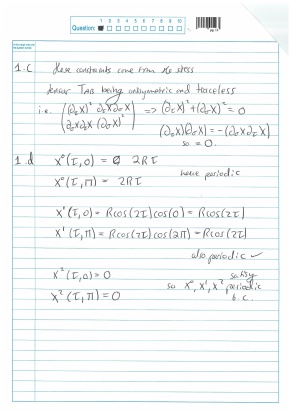 Question: 1 2 3 4 5 6 7 8 9 10
1.c these constraints come from the stress
tensor T_AB being antisymmetric and traceless
i.e. ( (∂_τX)² ∂_τX∂_σX ; ∂_σX∂_τX (∂_σX)² ) => (∂_τX)² + (∂_σX)² = 0
(∂_τX)(∂_σX) = -(∂_σX ∂_τX)
so = 0.
1.d X⁰(τ,0) = 2Rτ
X⁰(τ,π) = 2Rτ
hence periodic
X¹(τ,0) = Rcos(2τ)cos(0) = Rcos(2τ)
X¹(τ,π) = Rcos(2τ)cos(2π) = Rcos(2τ)
also periodic ✓
X²(τ,0) = 0
X²(τ,π) = 0
so X⁰, X¹, X² satisfy periodic
b.c.